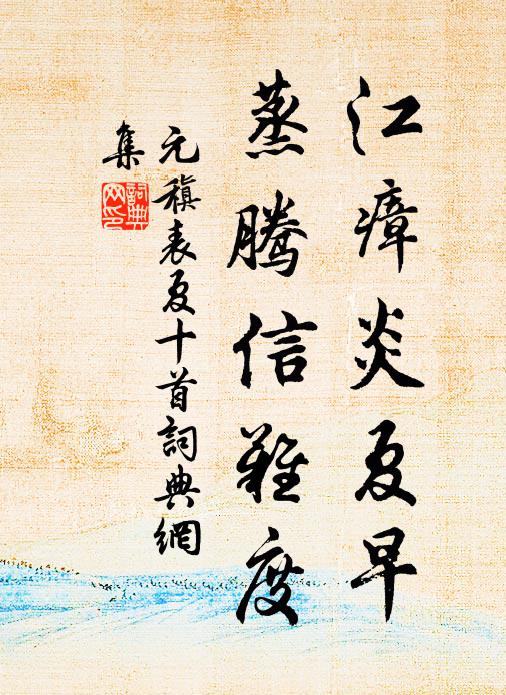 江瘴炎夏早
蒸騰信難度
元稹表夏十首詞典網
集
詞典
网印